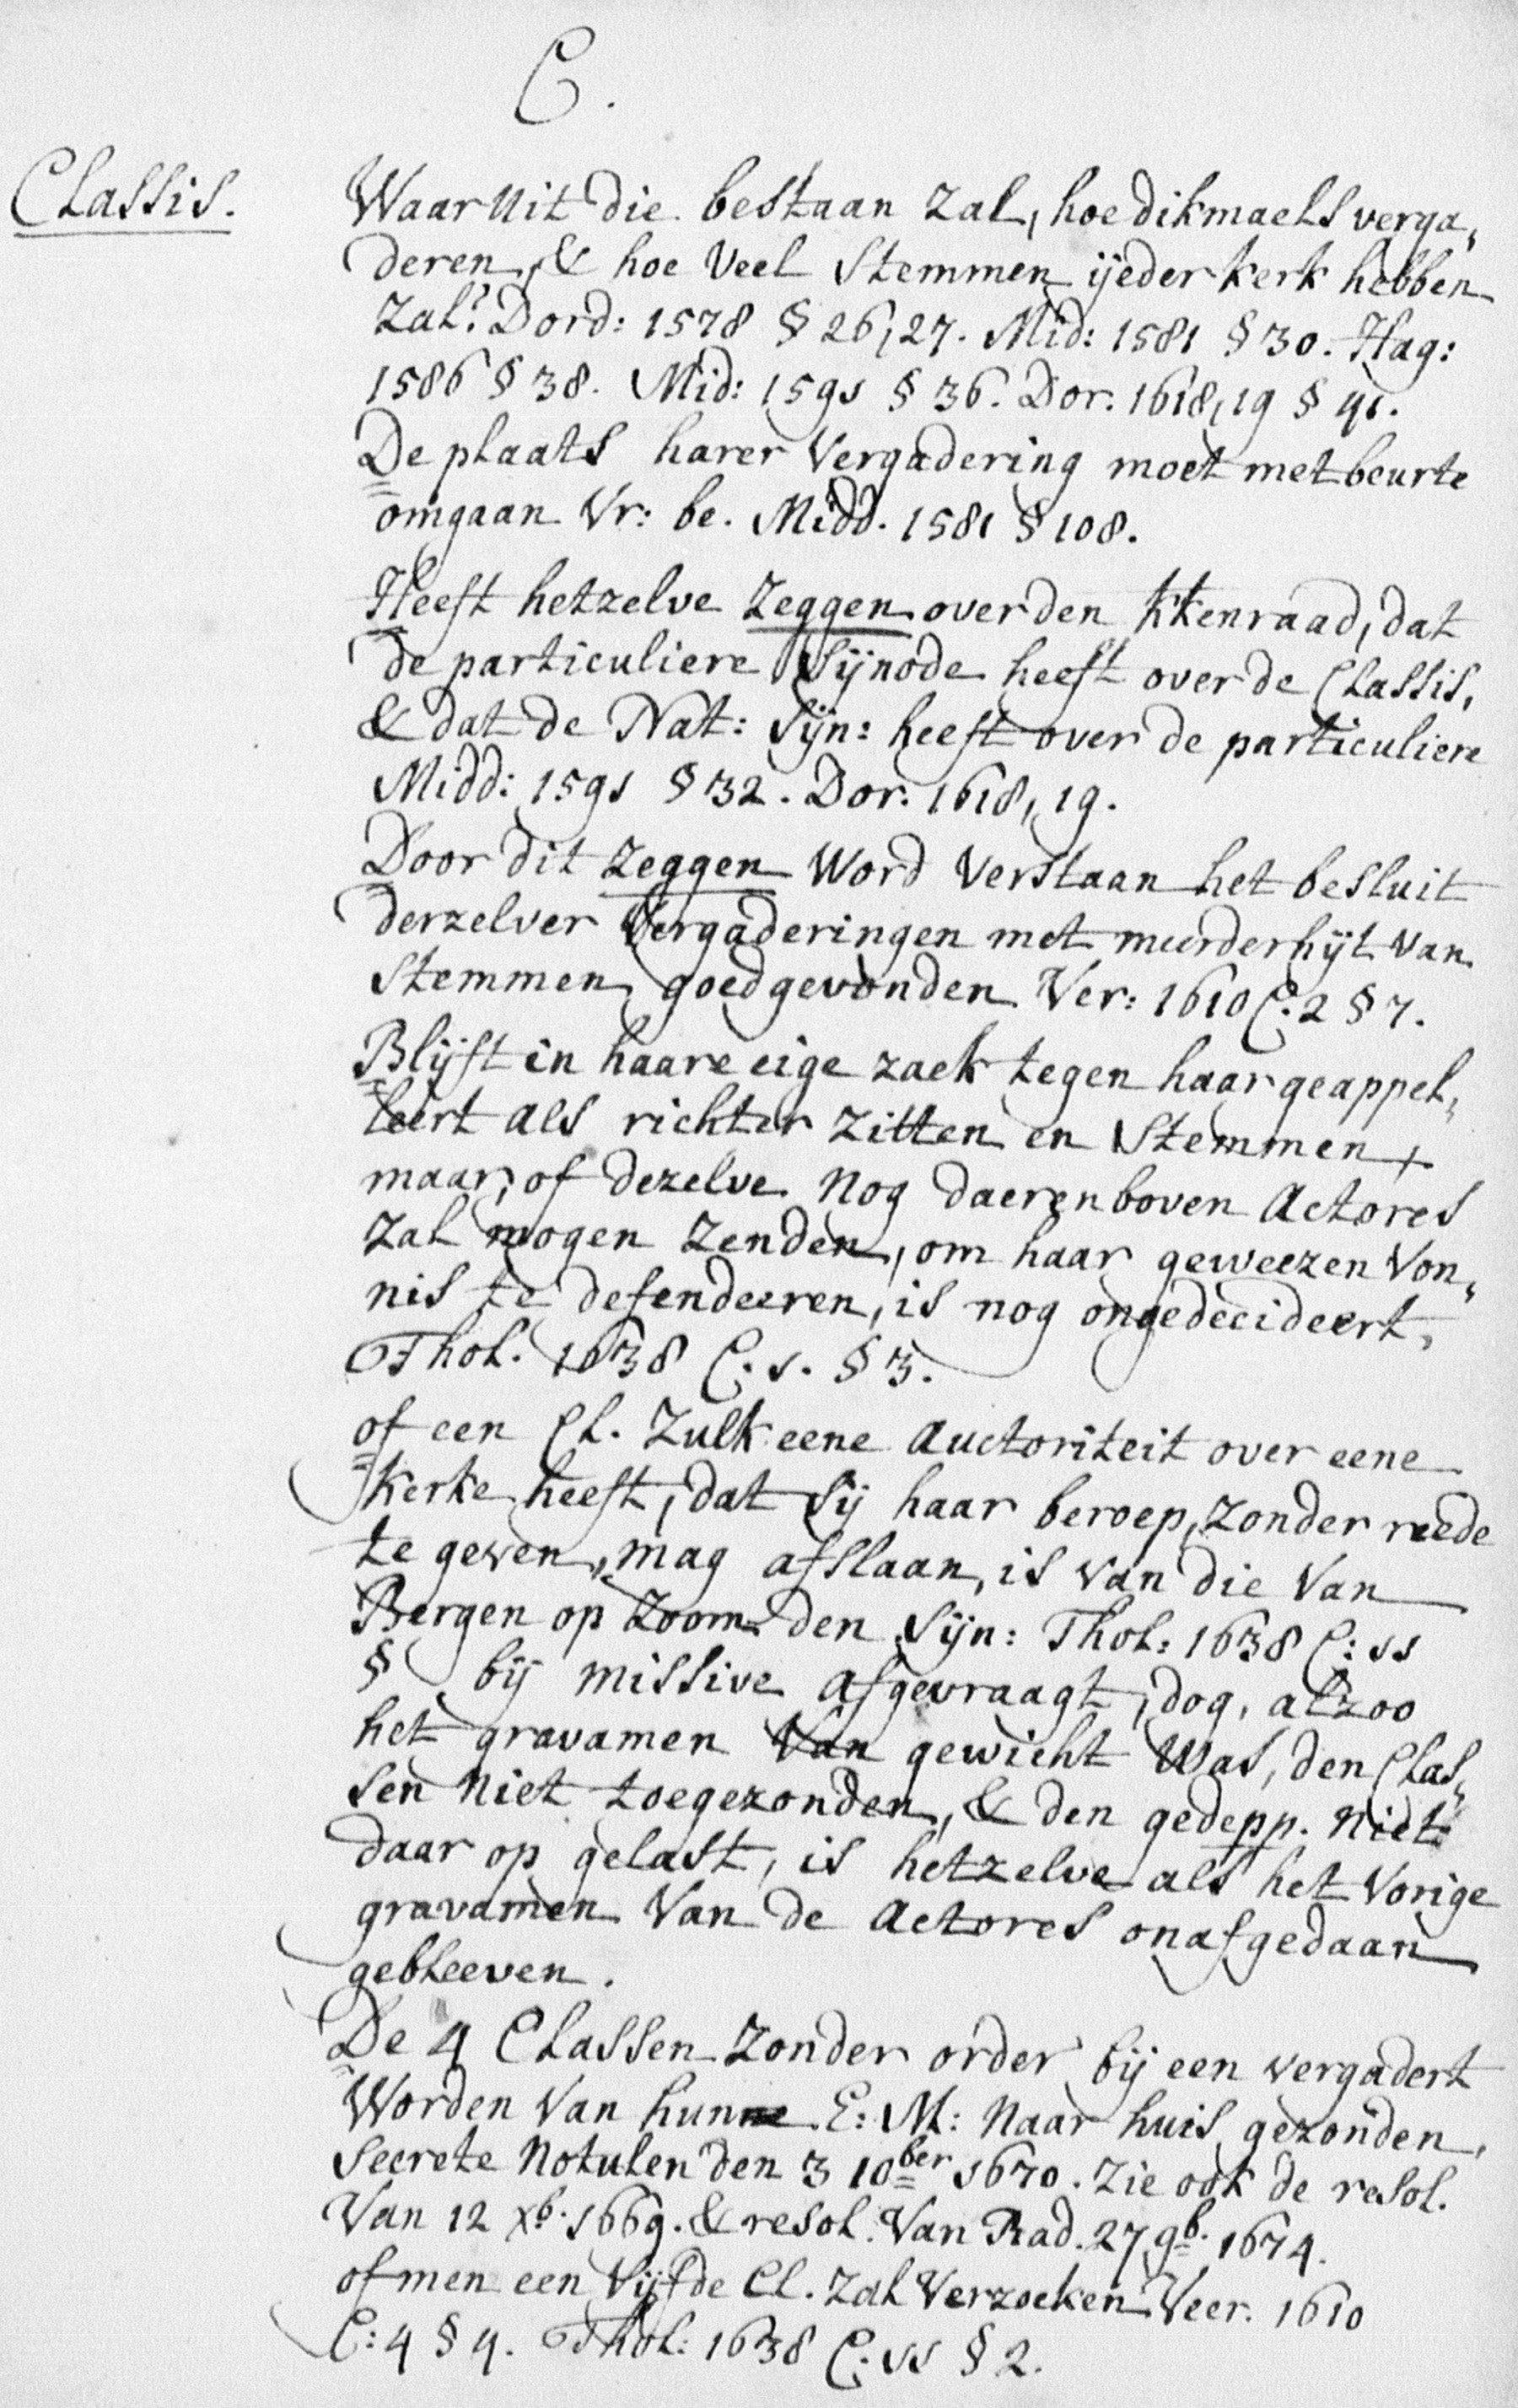 C.
Classis.
Waar Uit die bestaan zal, hoe dikmaels verga„
deren, & hoe Veel Stemmen ijeder kerk hebben
Zal? Dord: 1578 § 26, 27. Mid: 1581 § 30. Hag:
1586 § 38. Mid: 1591 § 36. Dor. 1618, 19 § 41.
De plaats harer Vergadering moet met beurte
omgaan Vr: be. Midd. 1581 § 108.
Heeft hetzelve Zeggen over den kkenraad, dat
de particuliere Sijnode heeft over de Classis,
& dat de Nat: Sijn: heeft over de particuliere
Midd: 1591 § 32. Dor: 1618, 19.
Door dit Zeggen Word Verstaan het besluit
derzelver Vergaderingen met meerderhijt Van
Stemmen goedgevonden Ver: 1610 C. 2 § 7.
Blijft in haare eige zaek tegen haar geappel„
leert als richter Zitten en Stemmen +
maar, of dezelve Nog daerenboven Actores
Zal mogen Zenden, om haar geweezen Von„
nis te defendeeren, is nog ongedecideert,
Thol. 1638 C. 1. § 3.
of een Cl. Zulk eene Auctoriteit over eene
kerke heeft, dat Sij haar beroep, Zonder reede
te geven, mag afslaan, is van die Van
Bergen op Zoom den Sijn: Thol: 1638 C: 11
§ bij missive afgevraagt, dog, alzoo
het gravamen Van gewicht Was, den Clas„
sen Niet toegezonden, & den gedepp. Niet
daar op gelast, is hetzelve als het Vorige
gravamen Van de Actores onafgedaan
gebleeven.
De 4 Classen Zonder order bij een vergadert
Worden Van hunne E: M: Naar huis gezonden,
Secrete Notulen den 3 10ber 1670. Zie ook de resol.
Van 12 xb. 1669. & resol. Van Rad. 27 9b. 1674.
of men een Vijfde Cl. Zal Verzoeken Veer. 1610
C: 4 § 4. Thol: 1638 C: 11 § 2.